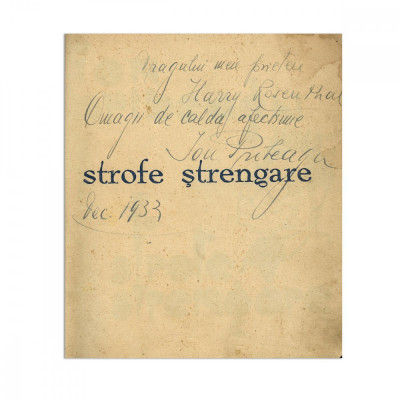 Dragului meu prieten
Harry Rosenthal
Omagii de caldă afecțiune
Ion Pribeagu
strofe ştrengare
Dec. 1933